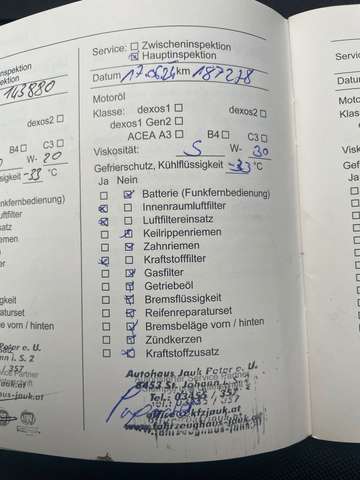 nspektion
pektion
143880
dexos2 ☐
B4 ☐ C3 ☐
W- 20
sigkeit -33 °C
ung)
ftfilter
satz
iemen
n
lter
keit
raturset
äge vorn / hinten
n
usatz
Service: ☐ Zwischeninspektion
☒ Hauptinspektion
Datum 17.06.24 km 187278
Motoröl
Klasse: dexos1 ☐ dexos2 ☐
dexos1 Gen2 ☐
ACEA A3 ☐ B4 ☐ C3 ☐
Viskosität: 5 W- 30
Gefrierschutz, Kühlflüssigkeit -33 °C
Ja Nein
☐ ☒ Batterie (Funkfernbedienung)
☒ ☐ Innenraumluftfilter
☒ ☐ Luftfiltereinsatz
☐ ☒ Keilrippenriemen
☐ ☒ Zahnriemen
☒ ☐ Kraftstofffilter
☐ ☒ Gasfilter
☐ ☒ Getriebeöl
☐ ☒ Bremsflüssigkeit
☐ ☒ Reifenreparaturset
☐ ☒ Bremsbeläge vorn / hinten
☐ ☒ Zündkerzen
☐ ☒ Kraftstoffzusatz
Autohaus Jauk Peter e. U.
8453 St. Johann i. S. 2
Tel.: 03455 / 357
office@kfzjauk.at
www.fahrzeughaus-jauk.at